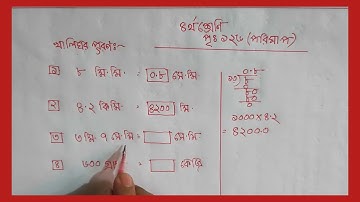 ৪র্থ শ্রেণি
পৃঃ ১২৬ (পরিমাপ)
খালিঘর পূরণঃ-
১ ৮ মি.মি. = ০.৮ সে.মি.
২ ৪.২ কিমি = ৪২০০ মি.
৩ ৩ মি. ৭ সে.মি = সে.মি
৪ ৬০০ গ্রাম = কেজি
০.৮
১০ ৮
০
৮০
৮০
০
১০০০ x ৪.২
= ৪২০০.০